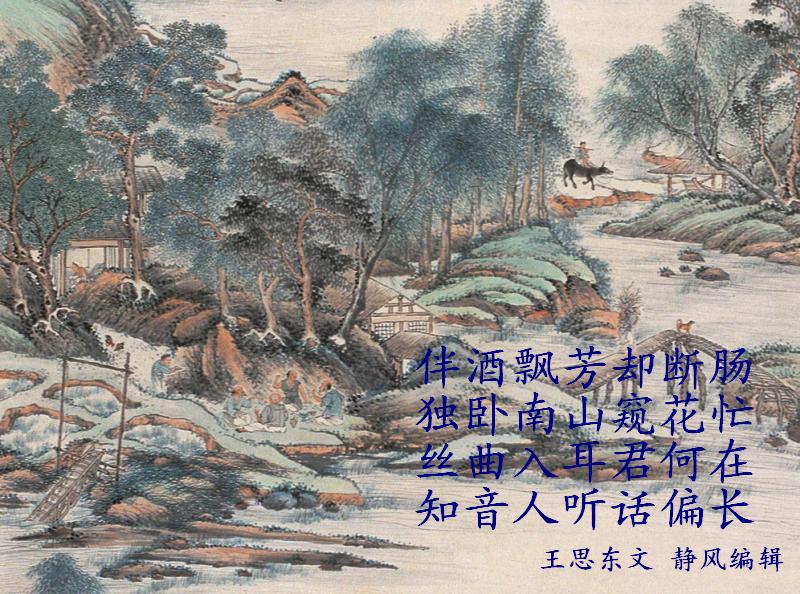 伴酒飘芳却断肠
独卧南山窥花忙
丝曲入耳君何在
知音人听话偏长
王思东文 静风编辑